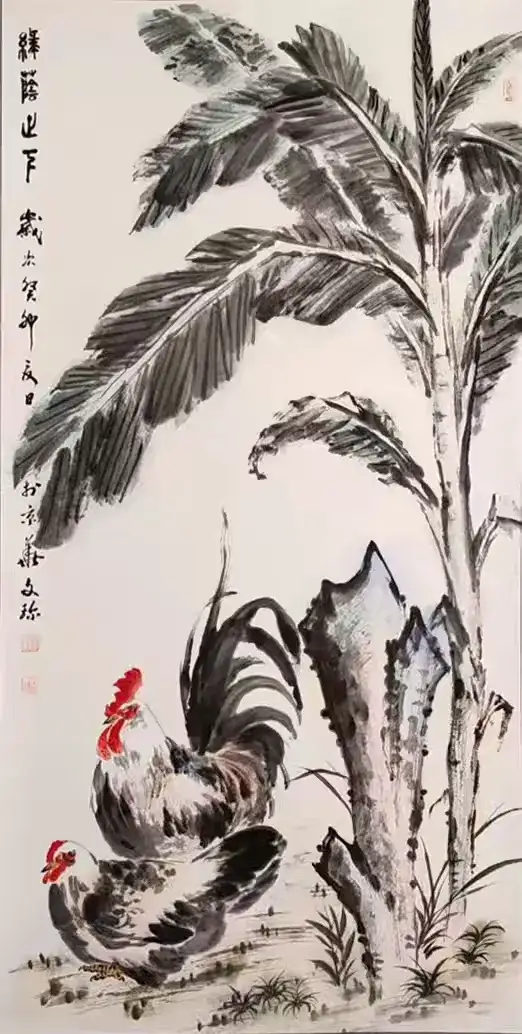 綠蔭之下 歲次癸卯夏日於京華文珍